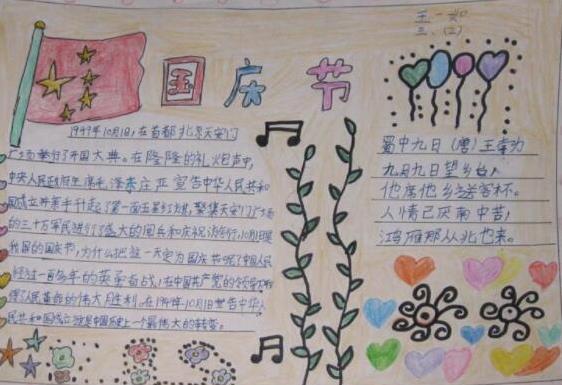 王一如
三、(2)
国庆节
1949年10月1日,在首都北京天安门
广场举行了开国大典。在隆隆的礼炮声中,
中央人民政府主席毛泽东庄严宣告中华人民共和
国成立并亲手升起了第一面五星红旗,聚集天安门广场
的三十万军民进行了盛大的阅兵和庆祝游行,10月1日是
我国的国庆节,为什么把这一天定为国庆节呢?中国人民
经过一百多年的英勇奋战,在中国共产党的领导下,
得了人民革命的伟大胜利,在1949年10月1日宣告中华人
民共和国成立,这是中国历史上一个最伟大的转变。
蜀中九日(唐)王勃
九月九日望乡台,
他席他乡送客杯。
人情已厌南中苦,
鸿雁那从北地来。